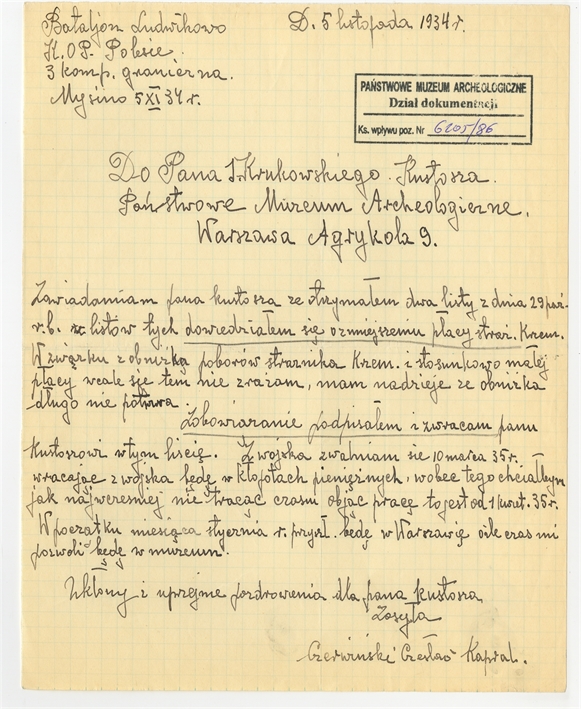 Bataljon Ludwikowo
K.O.P. Polesie
3 komp. graniczna.
Myśino 5 XI 34 r.
D. 5 listopada 1934 r.
PAŃSTWOWE MUZEUM ARCHEOLOGICZNE
Dział dokumentacji
Ks. wpływu poz. Nr 6205/86
Do Pana S. Krukowskiego Kustosza.
Państwowe Muzeum Archeologiczne.
Warszawa Agrykola 9.
Zawiadamiam pana kustosza ze otrzymałem dwa listy z dnia 29 paź.
r.b. z listów tych dowiedziałem się o zmniejszeniu płacy straż. Krzem.
W związku z obniżką poborów strażnika Krzem. i stosunkowo małej
płacy wcale się tem nie zrażam, mam nadzieje ze obniżka
długo nie potrwa.
Zobowiązanie podpisałem i zwracam panu
Kustoszowi w tym liscię. Z wojska zwalniam sie 10 marca 35 r.
wracając z wojska będę w kłopotach pieniężnych, wobec tego chciałbym
jak najwcześniej nie tracąc czasu objąc pracę to jest od 1 kwiet. 35 r.
W początku miesiąca stycznia r. przysł. będę w Warszawię o ile czas mi
pozwoli będę w muzeum.
Ukłony i uprzejme pozdrowienia dla pana kustosza
Zasyła
Czerwiński Czesław Kapral.